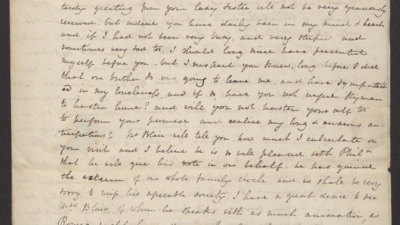 tardy greeting from your lazy sister will not be very graciously
received. but indeed you have daily been in my mind & heart
and if I had not been very busy, and very stupid and
sometimes very sad too, I should long since have presented
myself before you. but I suspect you knew, long before I did
that one brother Jo was going to leave me, and have sympathized
in my loneliness, and if so have you not urged Hyman
to hasten home? and will you not hasten yourself to
to perform your promise and realise my long & anxious an-
ticipations? Mr Blair will tell you how much I calculate on
your visit and I believe he is so well pleased with Phila
that he will give his vote in our behalf. he has gained
the esteem of our whole family circle and we shall be very
sorry to miss his agreeable society. I have a great desire to see
Mrs Blair of whom he speaks with as much animation as